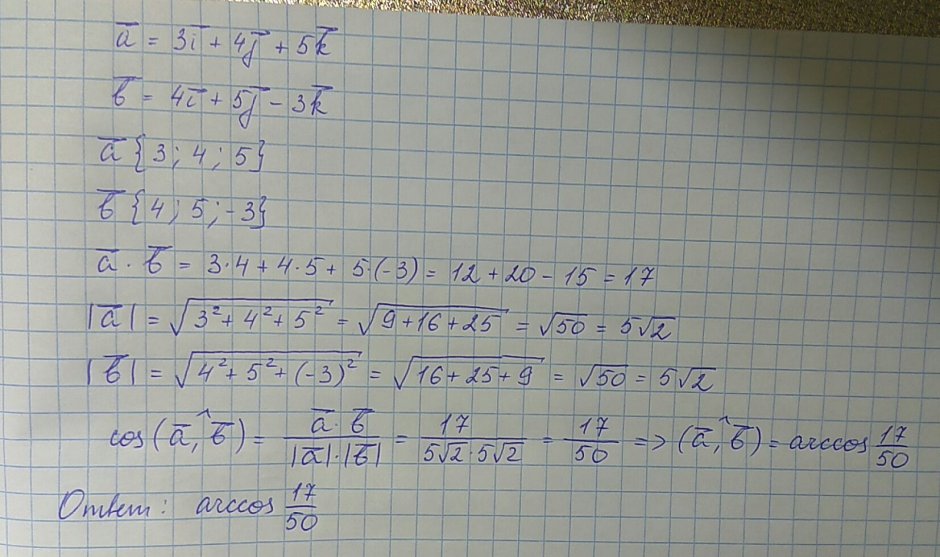 a̅ = 3i̅ + 4j̅ + 5k̅
b̅ = 4i̅ + 5j̅ - 3k̅
a̅ {3; 4; 5}
b̅ {4; 5; -3}
a̅ · b̅ = 3·4 + 4·5 + 5·(-3) = 12 + 20 - 15 = 17
|a̅| = √(3² + 4² + 5²) = √(9 + 16 + 25) = √50 = 5√2
|b̅| = √(4² + 5² + (-3)²) = √(16 + 25 + 9) = √50 = 5√2
cos(a̅,^b̅) = (a̅ · b̅)/(|a̅|·|b̅|) = 17/(5√2·5√2) = 17/50 => (a̅,^b̅) = arccos 17/50
Ответ: arccos 17/50